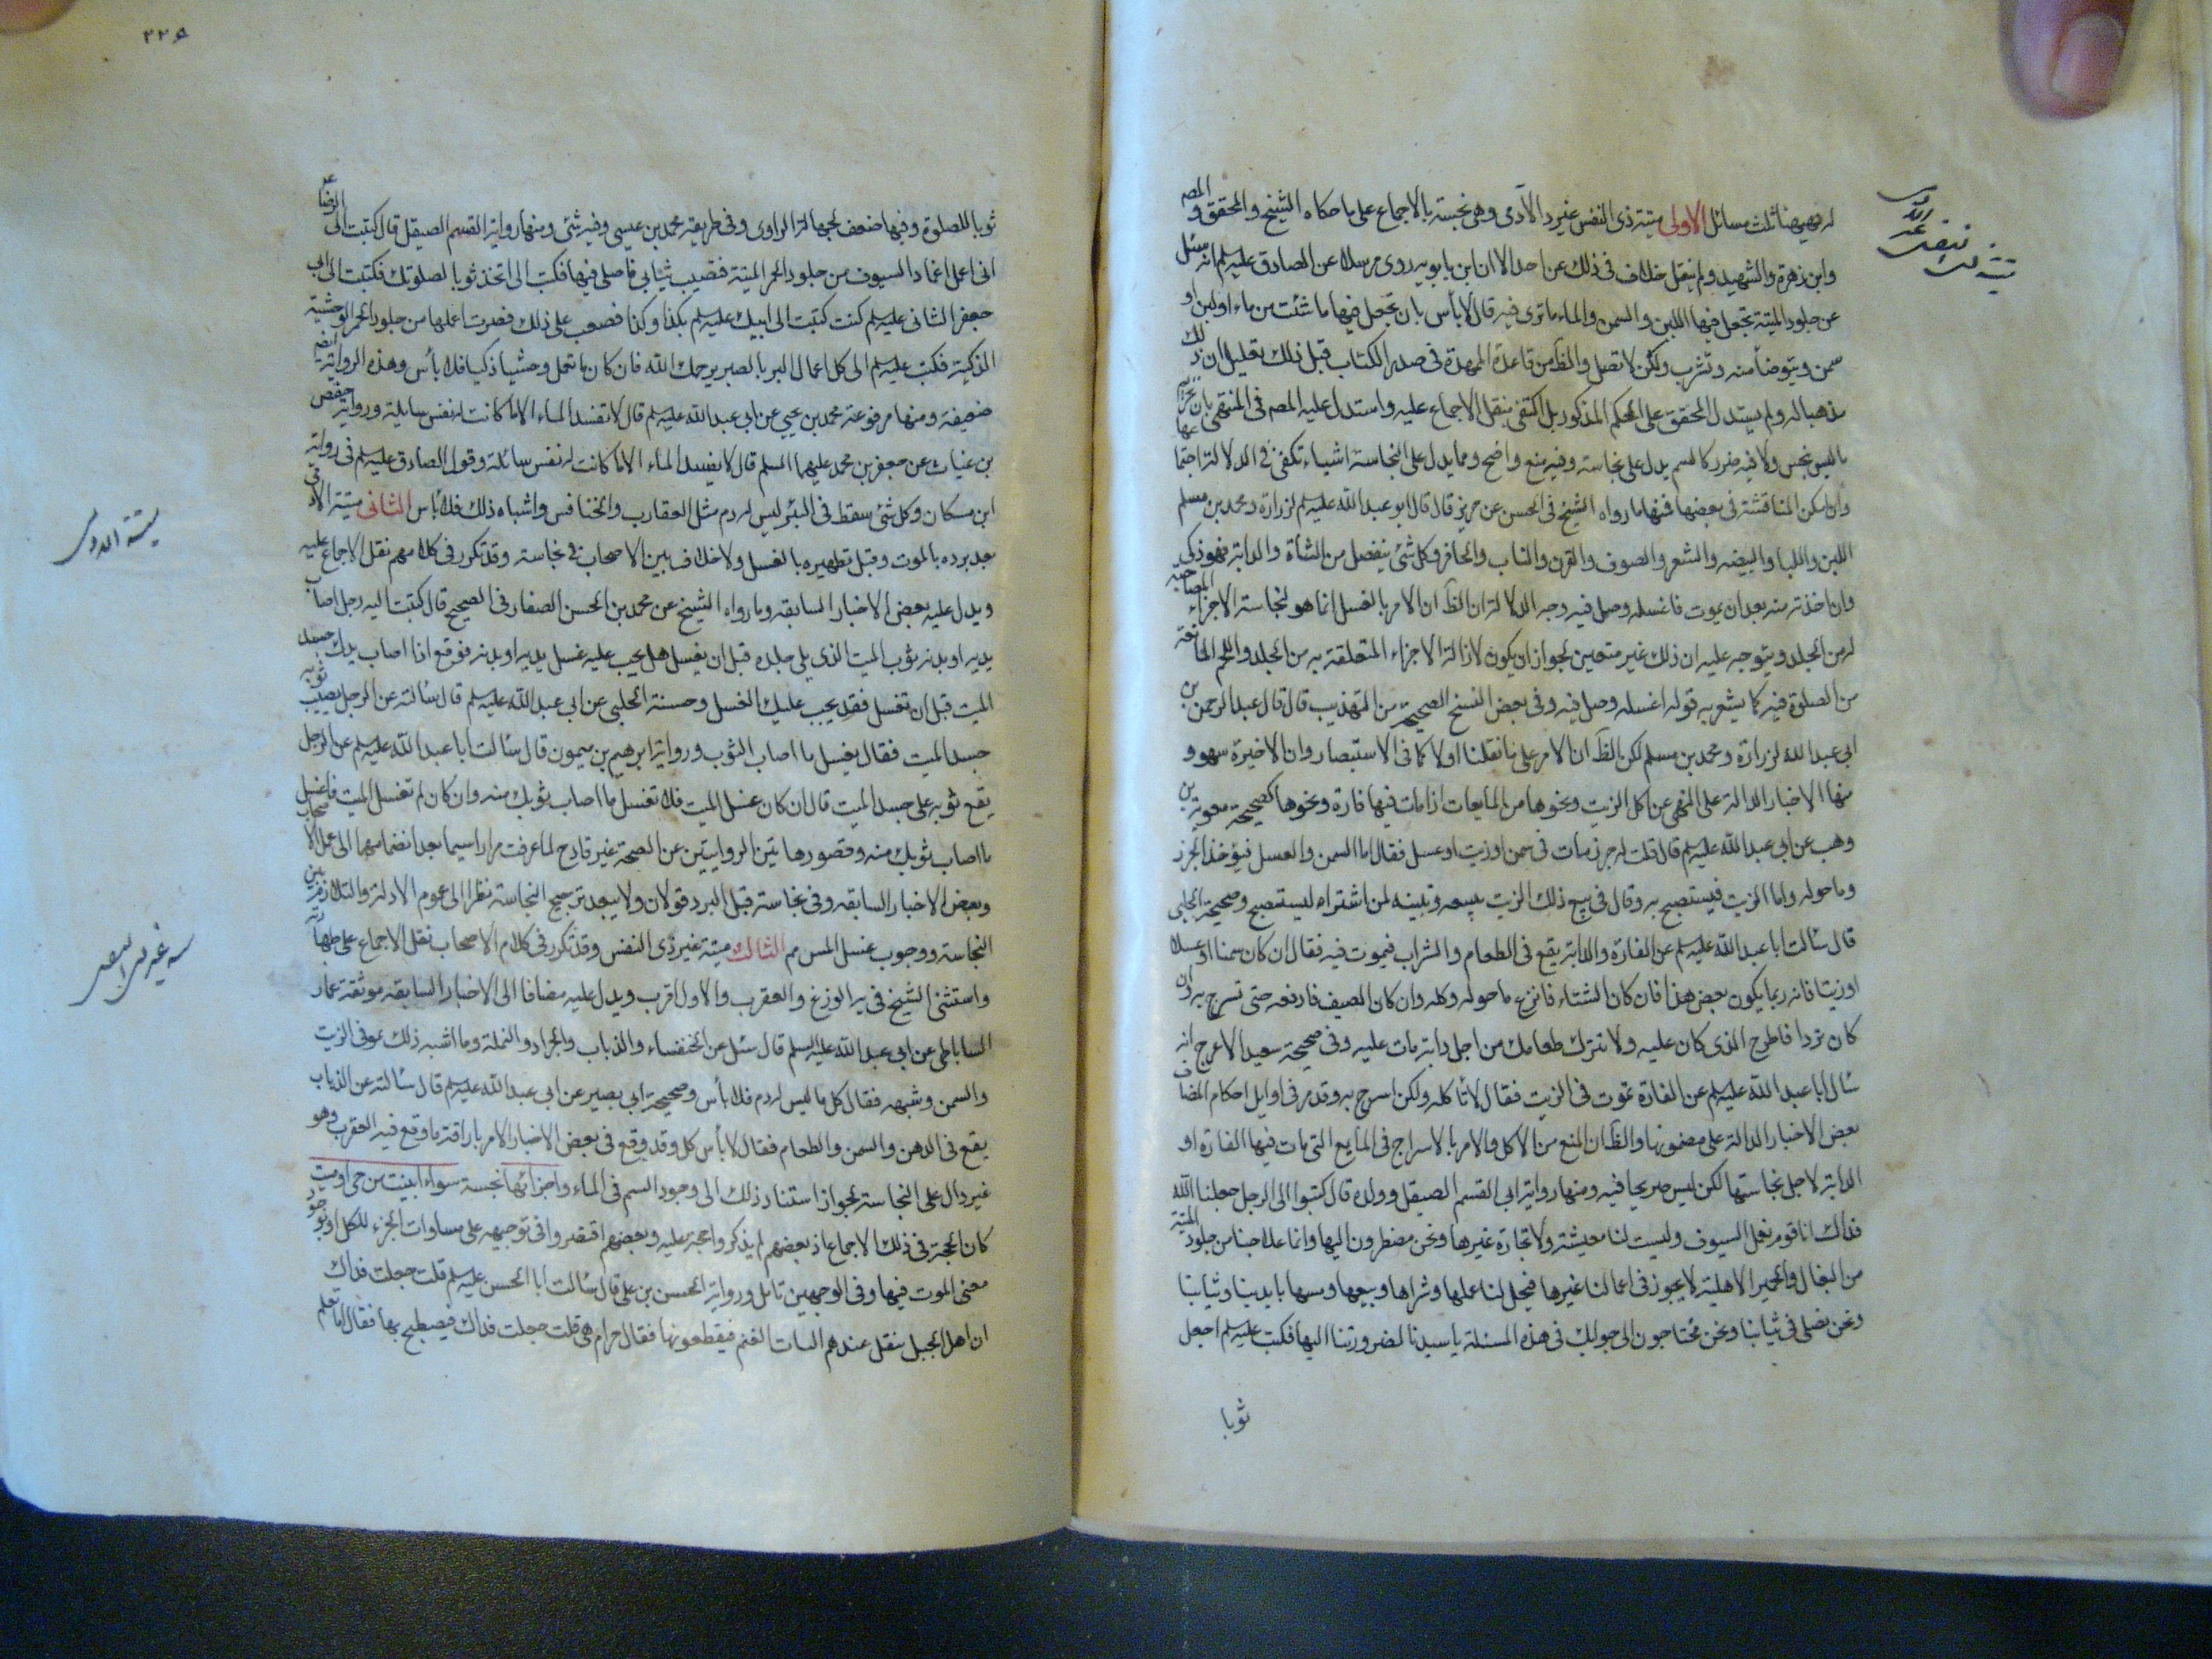 له فههنا ثلث مسائل الاولى ميتة ذى النفس غير الآدمى وهى نجسة بالاجماع على ما حكاه الشيخ والمحقق والمصـ
وابن زهرة والشهيد ولم ينقل خلاف فى ذلك عن احد الا ان ابن بابويه روى مرسلا عن الصادق عليه السلم انه سئل
عن جلود الميتة تجعل فيها اللبن والسمن والماء ما ترى فيه قال لا بأس بان تجعل فيها ما شئت من ماء او لبن او
سمن ويتوضأ منه وتشرب ولكن لا تصل والظ من قاعدة الممهدة فى صدر الكتاب قبل ذلك بقليل ان ذلك
مذهبا له ولم يستدل المحقق على الحكم المذكور بل اكتفى بنقل الاجماع عليه واستدل عليه المصـ فى المنتهى بان تحريم
ما ليس بنجس ولا فيه ضرر كالسم يدل على نجاسته وفيه منع واضح ومما يدل على النجاسة اشياء تكفى فى الدلالة اجتماعها
وان امكن المناقشة فى بعضها فمنها ما رواه الشيخ فى الحسن عن حريز قال قال ابو عبد الله عليه السلم لزرارة ومحمد بن مسلم
اللبن واللبا والبيضه والشعر والصوف والقرن والناب والحافر وكل شئ ينفصل من الشاة والدابة فهو ذكى
وان اخذته منه بعد ان يموت فاغسله وصل فيه وجه الدلالة ان الظ ان الامر بالغسل انما هو لنجاسة الاجزاء المصاحبة
له من الجلد ويتوجه عليه ان ذلك غير متعين لجواز ان يكون لازالة الاجزاء المتعلقة به من الجلد واللحم المانعة
من الصلوة فيه كما يشعر به قوله اغسله وصل فيه وفى بعض النسخ الصحيحة من التهذيب قال قال عبد الرحمن بن
ابى عبد الله لزرارة ومحمد بن مسلم لكن الظ ان الامر على ما نقلنا اولا كما فى الاستبصار وان الاخيرة سهو و
منها الاخبار الدالة على النهى عن اكل الزيت ونحوها من المايعات اذا مات فيها فارة ونحوها كصحيحة معوية بن
وهب عن ابى عبد الله عليه السلم قال قلت له جرذ مات فى سمن او زيت او عسل فقال اما السمن والعسل فيؤخذ الجرذ
وما حوله واما الزيت فيستصبح به وقال فى بيع ذلك الزيت يبيعه وتبينه لمن اشتراه ليستصبح وصحيحة الحلبى
قال سألت ابا عبد الله عليه السلم عن الفارة والدابة يقع فى الطعام والشراب فيموت فيه فقال ان كان سمنا او عسلا
او زيتا فانه ربما يكون بعض هذا فان كان الشتاء فانزع ما حوله وكله وان كان الصيف فادفعه حتى تسرج به وان
كان بردا فاطرح الذى كان عليه ولا تترك طعامك من اجل دابة مات عليه وفى صحيحة سعيد الاعرج انه
سأل ابا عبد الله عليه السلم عن الفارة تموت فى الزيت فقال لا تأكله ولكن اسرج به وقد مر فى اوايل احكام المضاف
بعض الاخبار الدالة على مضمونها والظ ان المنع من الاكل والامر بالاسراج فى المايع التى مات فيها الفارة او
الدابة لاجل نجاستها لكن ليس صريحا فيه ومنها رواية ابى القسم الصيقل وولده قال كتبوا الى الرجل جعلنا الله
فداك انا قوم نعمل السيوف وليست لنا معيشة ولا تجارة غيرها ونحن مضطرون اليها وانما علاجنا من جلود الميتة
من البغال والحمير الاهلية لا يجوز فى اعمالنا غيرها فيحل لنا عملها وشراها وبيعها ومسها بايدينا وثيابنا
ونحن نصلى فى ثيابنا ونحن محتاجون الى جوابك فى هذه المسئلة يا سيدنا لضرورتنا اليها فكتب عليه السلم اجعل
ثوبا
٢٢٥
ثوبا للصلوة وفيها ضعف لجهالة الراوى وفى طريقه محمد بن عيسى وفيه شئ ومنها رواية القسم الصيقل قال كتبت الى الرضا ع
انى اعمل اغماد السيوف من جلود الحمر الميتة فتصيب ثيابى فاصلى فيها فكتب الى اتخذ ثوبا لصلوتك فكتبت الى ابى
جعفر الثانى عليه السلم كنت كتبت الى ابيك عليه السلم بكذا وكذا فصعب على ذلك فصرت اعملها من جلود الحمر الوحشية
الذكية فكتب عليه السلم الى كل اعمال البر بالصبر يرحمك الله فان كان ما تعمل وحشيا ذكيا فلا بأس وهذه الرواية ايضا
ضعيفة ومنها مرفوعة محمد بن يحيى عن ابى عبد الله عليه السلم قال لا تفسد الماء الا ما كانت له نفس سايلة ورواية حفص
بن غياث عن جعفر بن محمد عليهما السلم قال لا يفسد الماء الا ما كانت له نفس سائلة وقول الصادق عليه السلم فى رواية
ابن مسكان وكل شئ سقط فى البئر ليس له دم مثل العقارب والخنافس واشباه ذلك فلا بأس الثانى ميتة الآدمى
بعد برده بالموت وقبل تطهيره بالغسل ولا خلاف بين الاصحاب فى نجاسته وقد تكرر فى كلامهم نقل الاجماع عليه
ويدل عليه بعض الاخبار السابقه وما رواه الشيخ عن محمد بن الحسن الصفار فى الصحيح قال كتبت اليه رجل اصاب
يديه او بدنه ثوب الميت الذى يلى جلده قبل ان يغسل هل يجب عليه غسل يديه او بدنه فوقع اذا اصاب يدك جسد
الميت قبل ان تغسل فقد يجب عليك الغسل وحسنة الحلبى عن ابى عبد الله عليه السلم قال سألته عن الرجل يصيب ثوبه
جسد الميت فقال يغسل ما اصاب الثوب ورواية ابرهيم بن ميمون قال سألت ابا عبد الله عليه السلم عن الرجل
يقع ثوبه على جسد الميت قال ان كان غسل الميت فلا تغسل ما اصاب ثوبك منه وان كان لم تغسل الميت فاغسل
ما اصاب ثوبك منه وقصور هاتين الروايتين عن الصحة غير قادح لما عرفت مرارا سيما بعد انضمامهما الى عمل الاصحاب
وبعض الاخبار السابقه وفى نجاسته قبل البرد قولان ولا يبعد ترجيح النجاسة نظرا الى عموم الادلة والتلازم بين
النجاسة ووجوب غسل المس مم الثالث ميتة غير ذى النفس وقد تكرر فى كلام الاصحاب نقل الاجماع على طهارته
واستثنى الشيخ فى يه الوزغ والعقرب والاول اقرب ويدل عليه مضافا الى الاخبار السابقه موثقة عمار
الساباطى عن ابى عبد الله عليه السلم قال سئل عن الخنفساء والذباب والجراد والنملة وما اشبه ذلك يموت فى الزيت
والسمن وشبهه فقال كل ما ليس له دم فلا بأس وصحيحة ابى بصير عن ابى عبد الله عليه السلم قال سألته عن الذباب
يقع فى الدهن والسمن والطعام فقال لا بأس كل وقد وقع فى بعض الاخبار الامر باراقة ما وقع فيه العقرب وهو
غير دال على النجاسة لجواز استناد ذلك الى وجود السم فى الماء واجزائها نجسة سواء ابينت من حى او ميت
كان الحجة فى ذلك الاجماع اذ بعضهم لم يذكر واحجة عليه وبعضهم اقتصروا فى توجيهه على مساوات الجزء للكل او بوجود
معنى الموت فيها وفى الوجهين تامل ورواية الحسن بن على قال سألت ابا الحسن عليه السلم قلت جعلت فداك
ان اهل الجبل تثقل عندهم اليات الغنم فيقطعونها فقال حرام هى قلت جعلت فداك فيصطبح بها فقال اما تعلم
ميتة الادمى